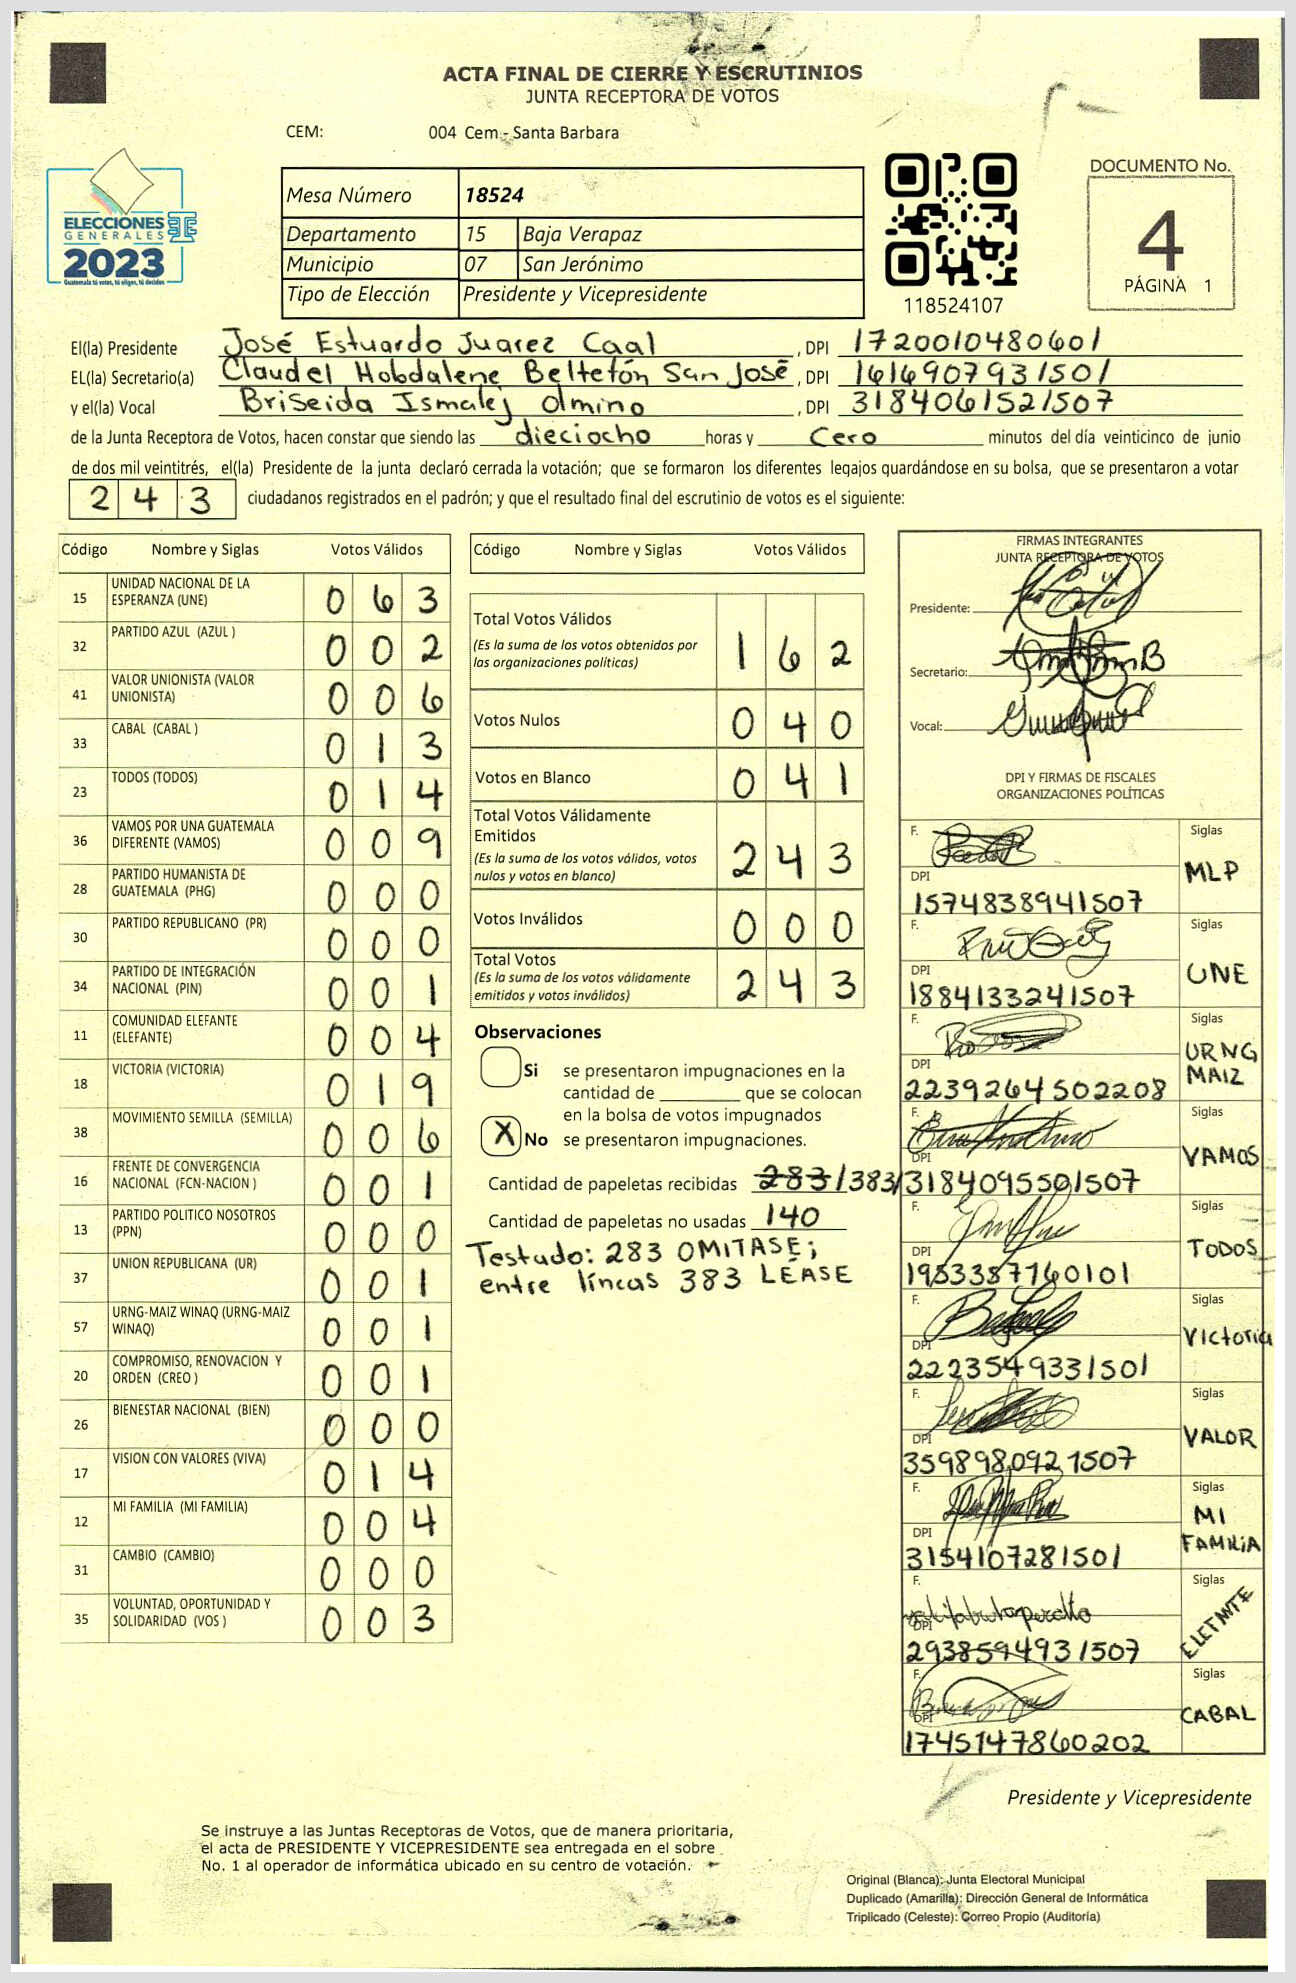 ACTA FINAL DE CIERRE Y ESCRUTINIOS
JUNTA RECEPTORA DE VOTOS
CEM: 004 Cem - Santa Barbara
ELECCIONES
GENERALES
2023
Guatemala tú votes, tú eliges, tú decides
Mesa Número 18524
Departamento 15 Baja Verapaz
Municipio 07 San Jerónimo
Tipo de Elección Presidente y Vicepresidente
118524107
DOCUMENTO No.
4
PÁGINA 1
El(la) Presidente José Estuardo Juarez Caal, DPI 1720010480601
EL(la) Secretario(a) Claudel Hobdalene Beltetón San José, DPI 1616907931501
y el(la) Vocal Briseida Ismalej Olmino, DPI 3184061521507
de la Junta Receptora de Votos, hacen constar que siendo las dieciocho horas y Cero minutos del día veinticinco de junio
de dos mil veintitrés, el(la) Presidente de la junta declaró cerrada la votación; que se formaron los diferentes legajos quardándose en su bolsa, que se presentaron a votar
243 ciudadanos registrados en el padrón; y que el resultado final del escrutinio de votos es el siguiente:
Código Nombre y Siglas Votos Válidos
15 UNIDAD NACIONAL DE LA ESPERANZA (UNE) 063
32 PARTIDO AZUL (AZUL ) 002
41 VALOR UNIONISTA (VALOR UNIONISTA) 006
33 CABAL (CABAL ) 013
23 TODOS (TODOS) 014
36 VAMOS POR UNA GUATEMALA DIFERENTE (VAMOS) 009
28 PARTIDO HUMANISTA DE GUATEMALA (PHG) 000
30 PARTIDO REPUBLICANO (PR) 000
34 PARTIDO DE INTEGRACIÓN NACIONAL (PIN) 001
11 COMUNIDAD ELEFANTE (ELEFANTE) 004
18 VICTORIA (VICTORIA) 019
38 MOVIMIENTO SEMILLA (SEMILLA) 006
16 FRENTE DE CONVERGENCIA NACIONAL (FCN-NACION ) 001
13 PARTIDO POLITICO NOSOTROS (PPN) 000
37 UNION REPUBLICANA (UR) 001
57 URNG-MAIZ WINAQ (URNG-MAIZ WINAQ) 001
20 COMPROMISO, RENOVACION Y ORDEN (CREO ) 001
26 BIENESTAR NACIONAL (BIEN) 000
17 VISION CON VALORES (VIVA) 014
12 MI FAMILIA (MI FAMILIA) 004
31 CAMBIO (CAMBIO) 000
35 VOLUNTAD, OPORTUNIDAD Y SOLIDARIDAD (VOS ) 003
Código Nombre y Siglas Votos Válidos
Total Votos Válidos 162
(Es la suma de los votos obtenidos por
las organizaciones políticas)
Votos Nulos 040
Votos en Blanco 041
Total Votos Válidamente
Emitidos 243
(Es la suma de los votos válidos, votos
nulos y votos en blanco)
Votos Inválidos 000
Total Votos 243
(Es la suma de los votos válidamente
emitidos y votos inválidos)
Observaciones
Si se presentaron impugnaciones en la
cantidad de ________ que se colocan
en la bolsa de votos impugnados
X No se presentaron impugnaciones.
Cantidad de papeletas recibidas 283/383/
Cantidad de papeletas no usadas 140
Testado: 283 OMITASE;
entre líneas 383 LÉASE
FIRMAS INTEGRANTES
JUNTA RECEPTORA DE VOTOS
Presidente:
Secretario:
Vocal:
DPI Y FIRMAS DE FISCALES
ORGANIZACIONES POLÍTICAS
F. Siglas
DPI MLP
1574838941507
F. Siglas
DPI UNE
1884133241507
F. Siglas
DPI URNG MAIZ
2239264502208
F. Siglas
DPI VAMOS
3184095501507
F. Siglas
DPI TODOS
1953387760101
F. Siglas
DPI Victoria
2223549331501
F. Siglas
DPI VALOR
3598980921507
F. Siglas
DPI MI FAMILIA
3154107281501
F. Siglas
DPI ELEFANTE
2938594931507
F. Siglas
DPI CABAL
1745147860202
Presidente y Vicepresidente
Se instruye a las Juntas Receptoras de Votos, que de manera prioritaria,
el acta de PRESIDENTE Y VICEPRESIDENTE sea entregada en el sobre
No. 1 al operador de informática ubicado en su centro de votación.
Original (Blanca): Junta Electoral Municipal
Duplicado (Amarilla): Dirección General de Informática
Triplicado (Celeste): Correo Propio (Auditoría)